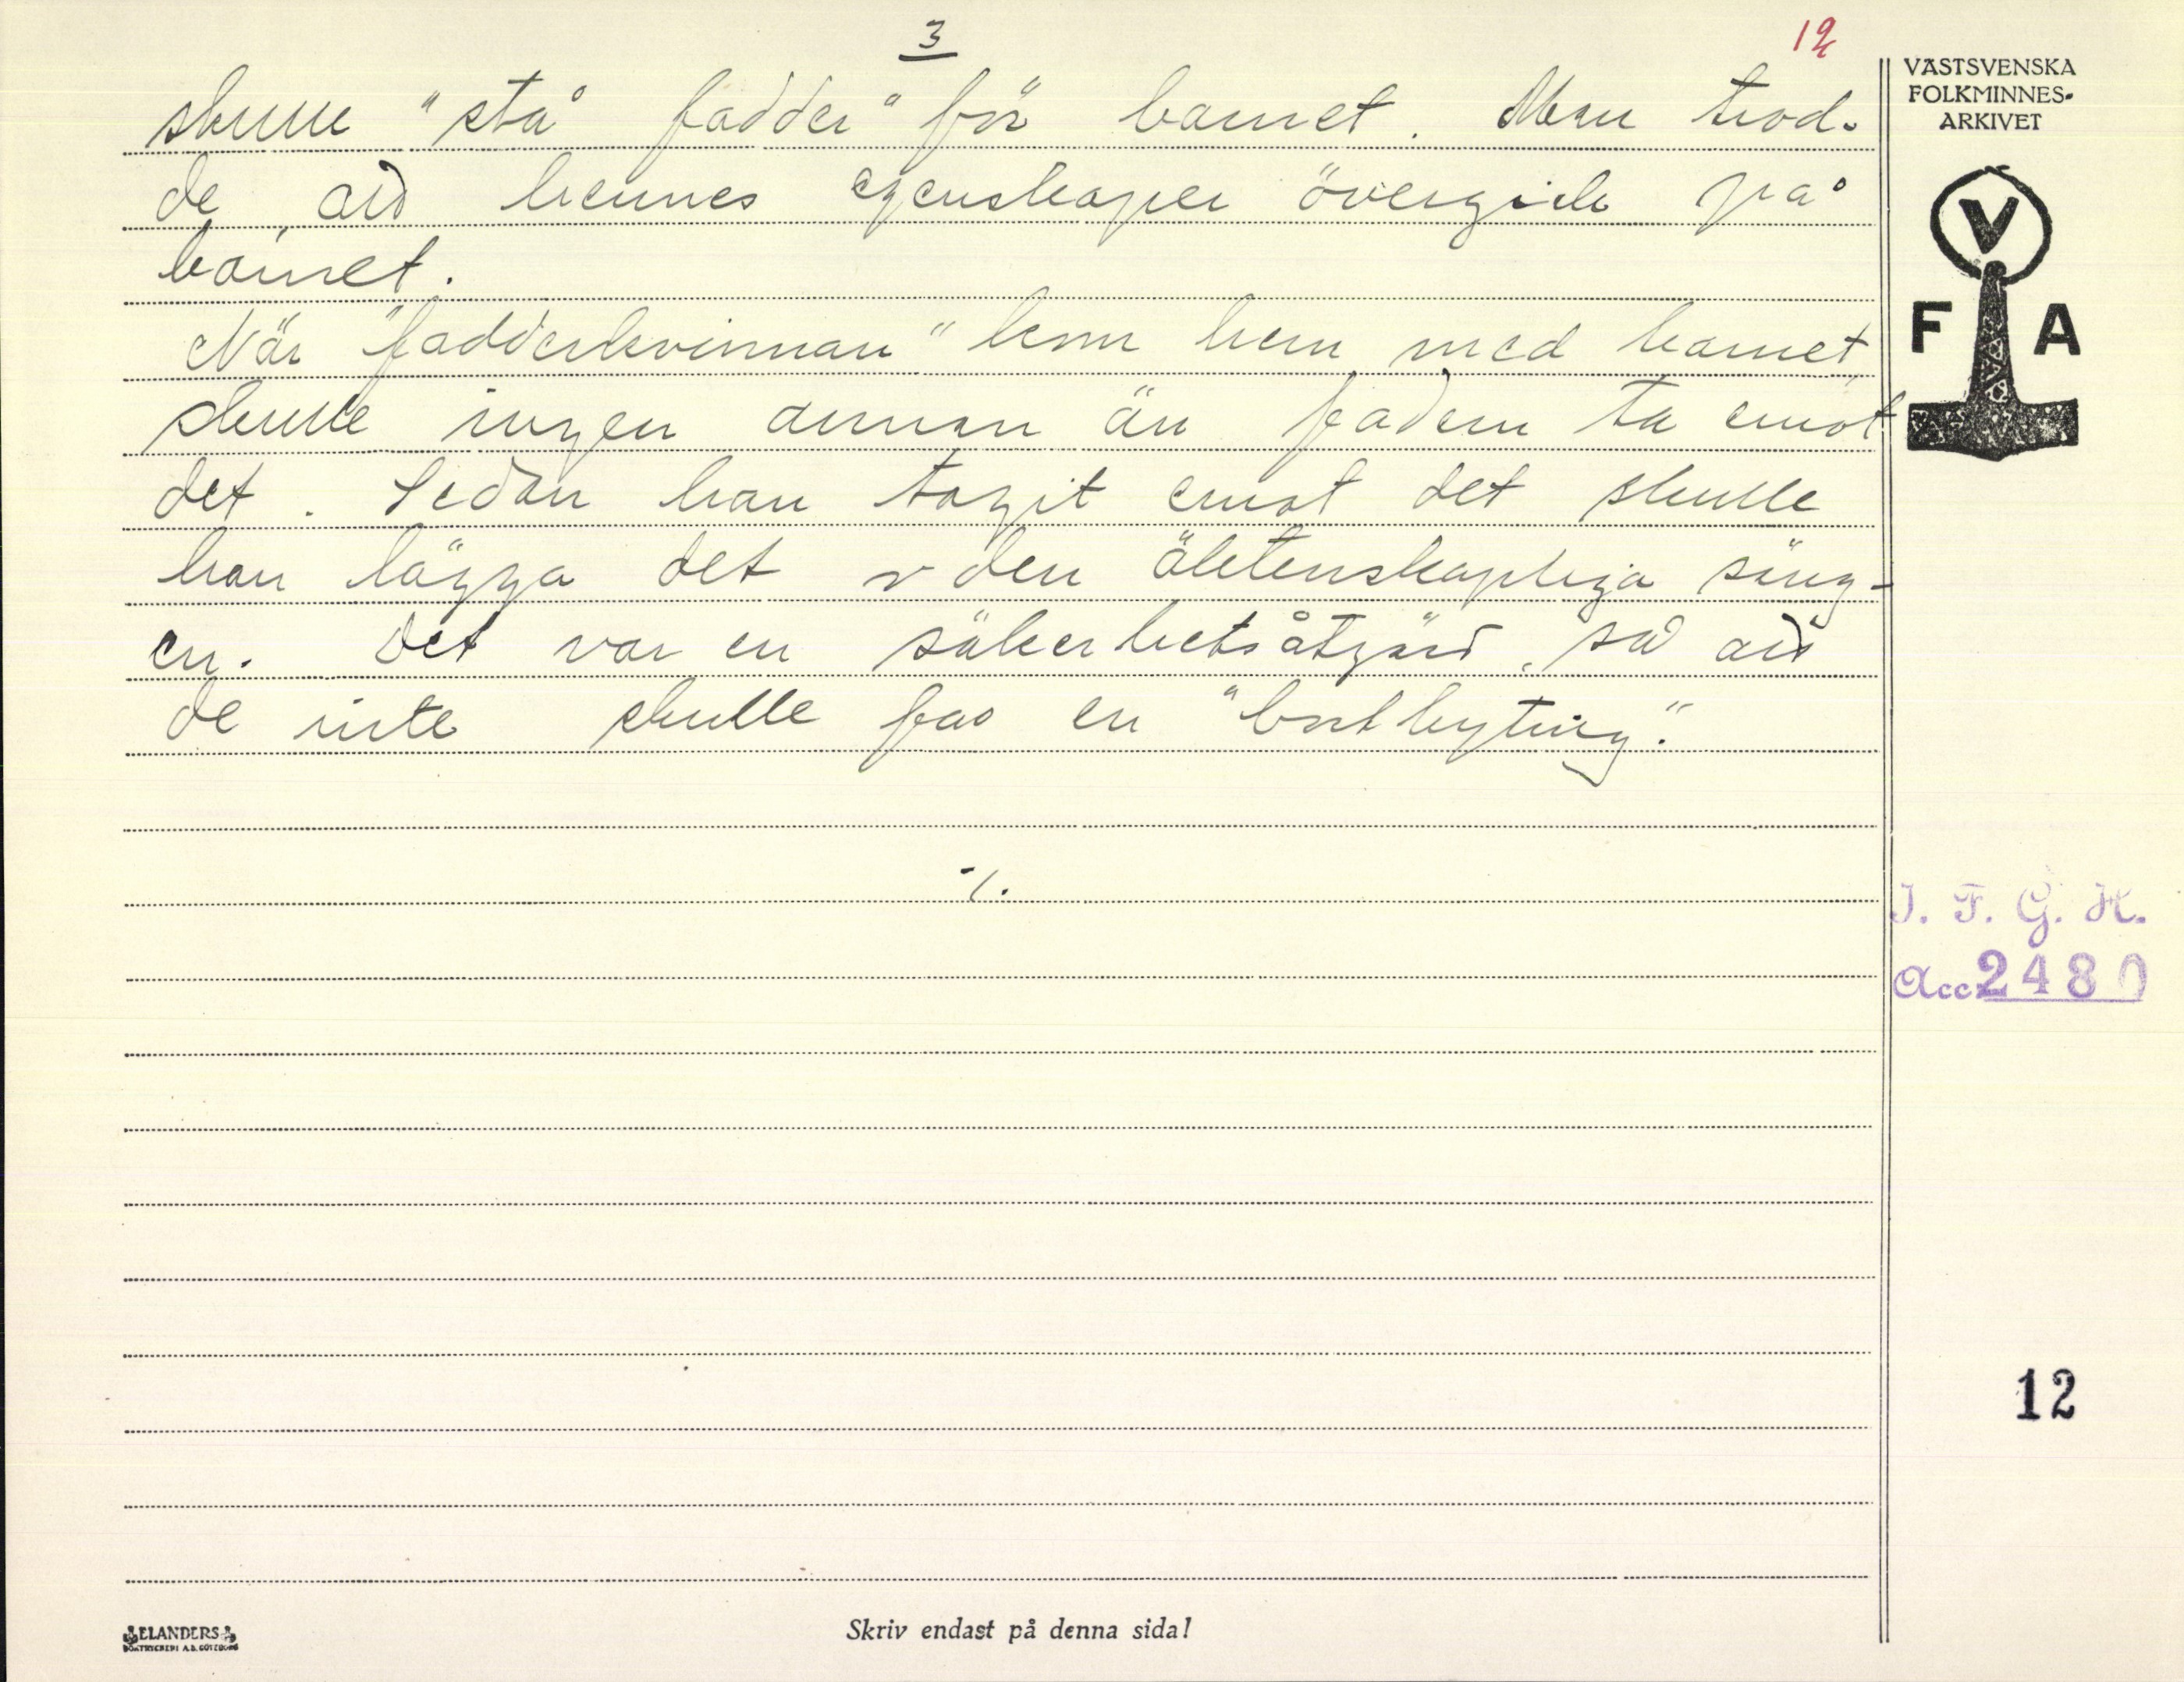 3
12
skulle "stå fadder" för barnet. Man trod-
de att hennes egenskaper övergick på
barnet.
När "fadderkvinnan" kom hem med barnet,
skulle ingen annan än fadern ta emot
det. Sedan han tagit emot det skulle
han lägga det i den äktenskapliga säng-
en. Det var en säkerhetsåtgärd, så att
de inte skulle få en "bortbyting".
-/.
VÄSTSVENSKA
FOLKMINNES-
ARKIVET
V
F A
I. F. G. H.
Acc. 2480
12
ELANDERS
BOKTRYCKERI A.B. GÖTEBORG
Skriv endast på denna sida!